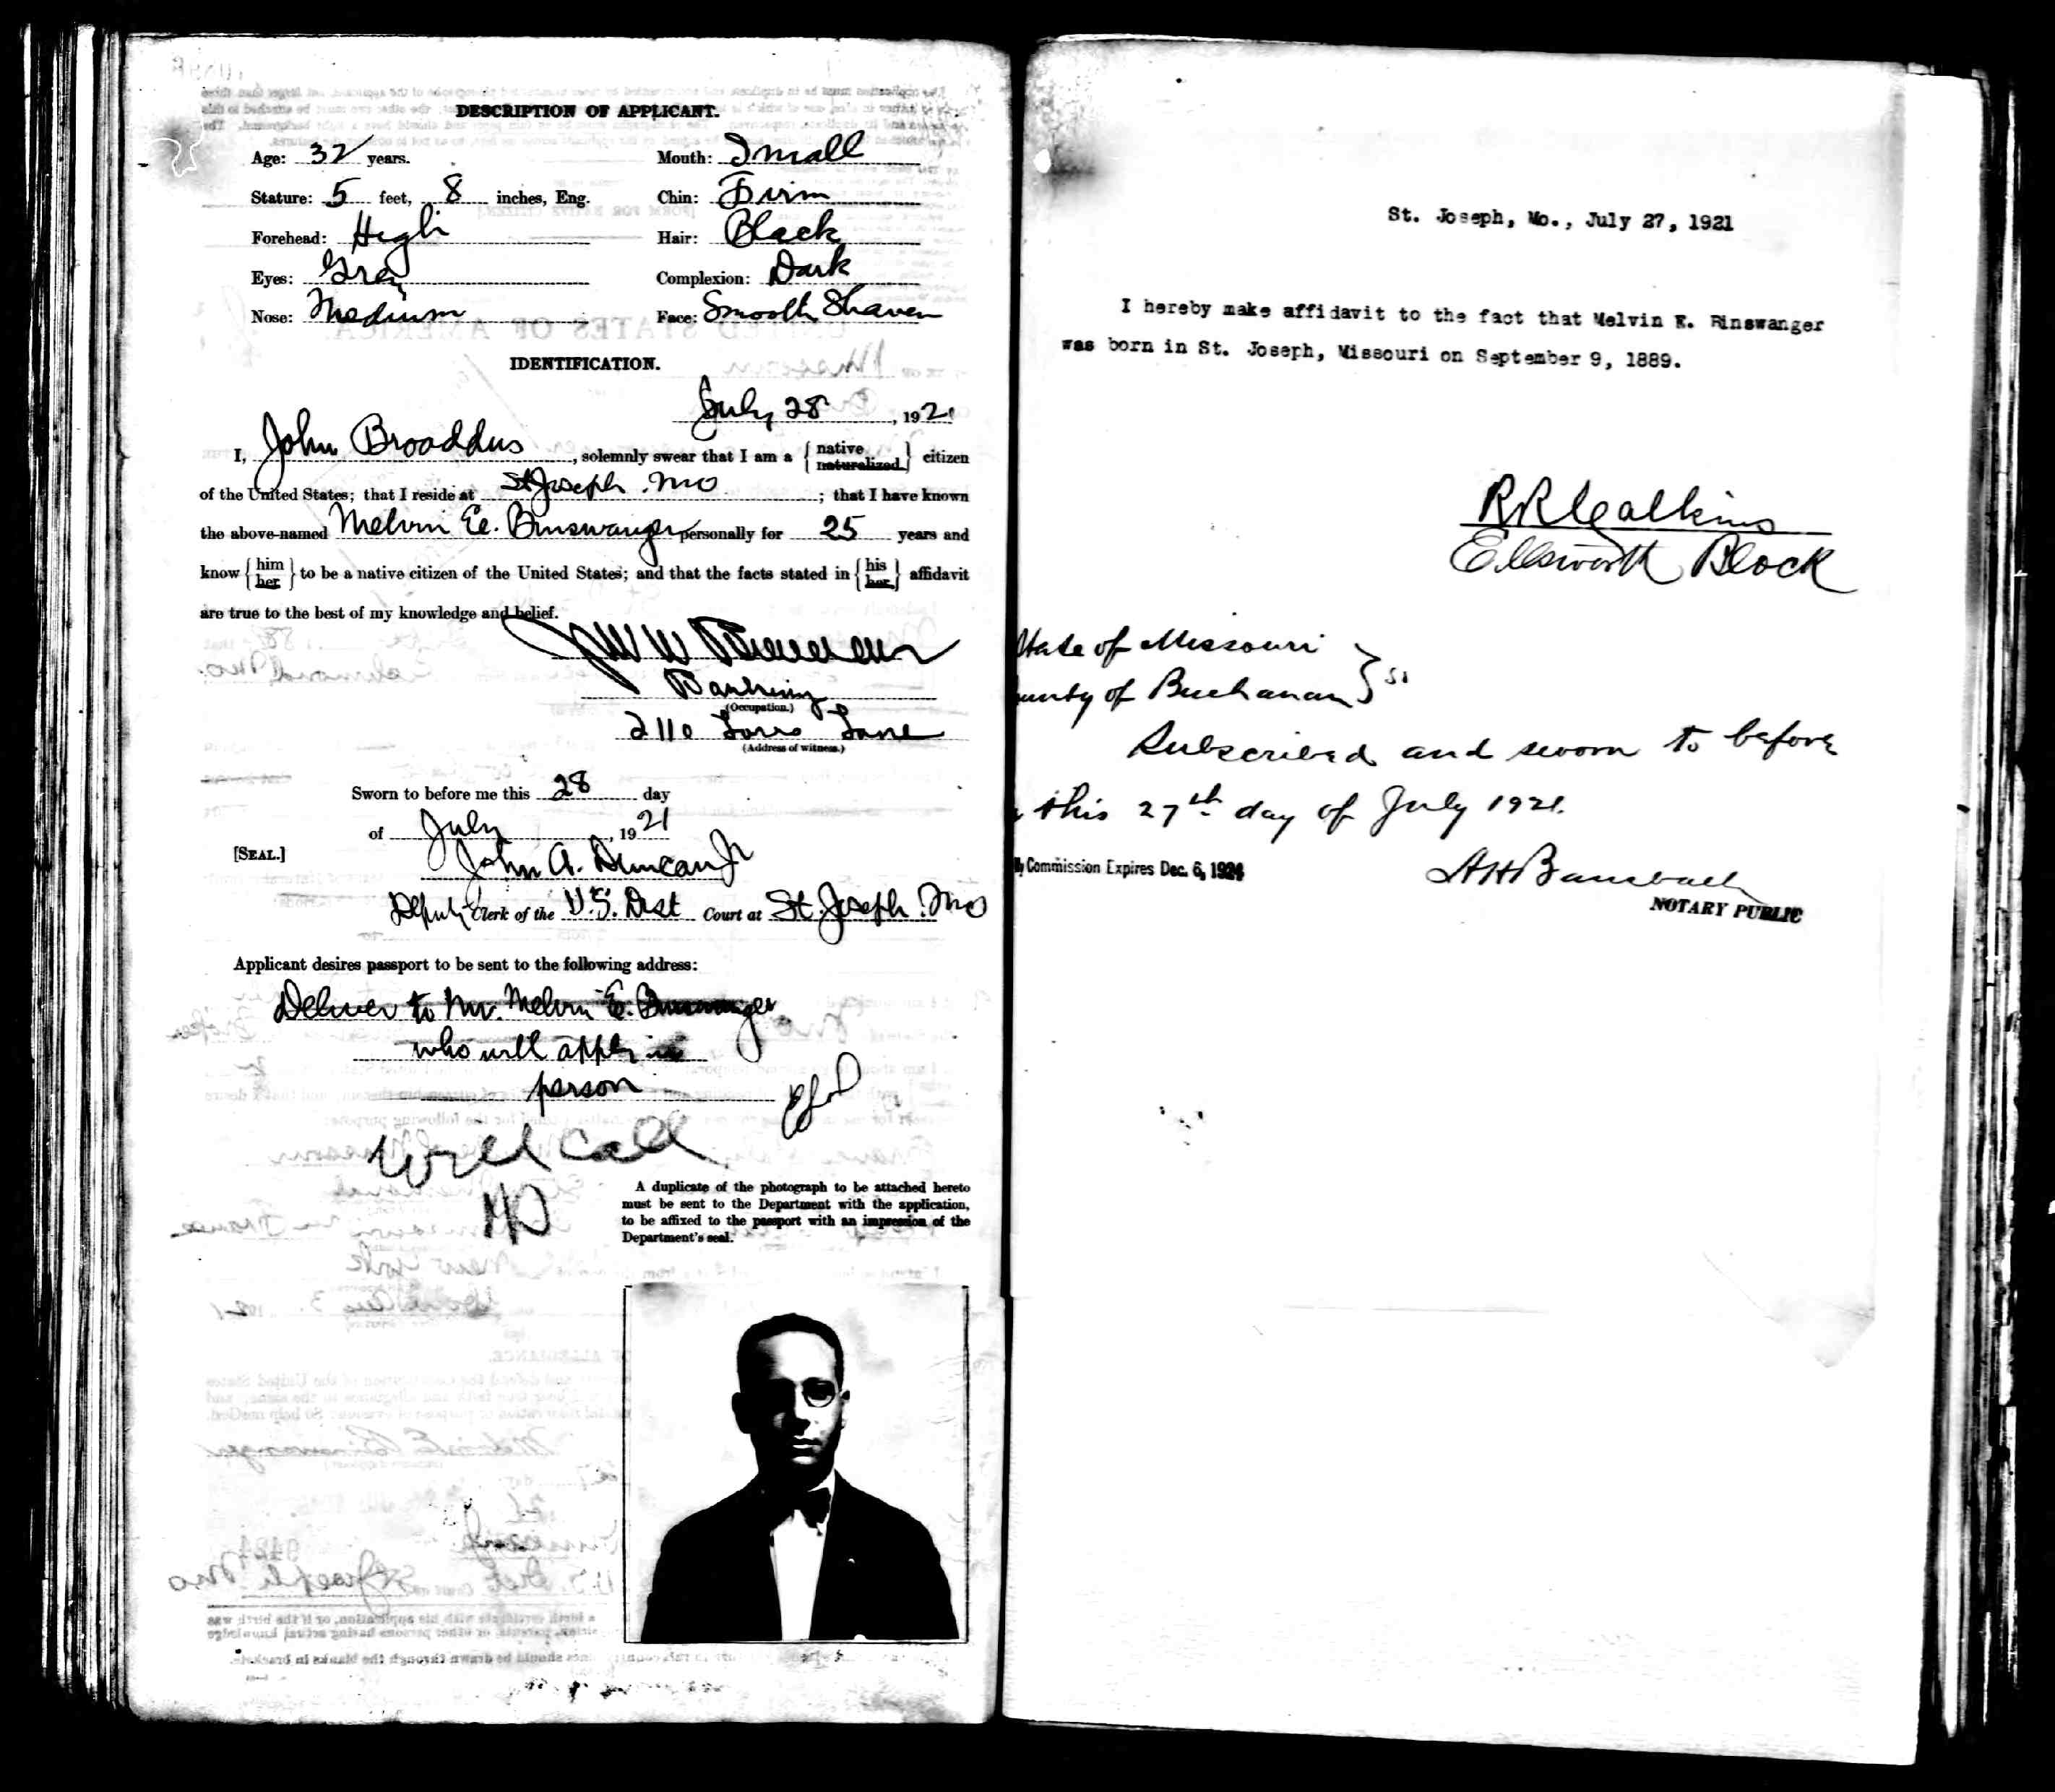 DESCRIPTION OF APPLICANT.
Age: 32 years. Mouth: Small
Stature: 5 feet, 8 inches, Eng. Chin: Firm
Forehead: High Hair: Black
Eyes: Grey Complexion: Dark
Nose: Medium Face: Smooth Shaven
IDENTIFICATION.
July 28, 1921
I, John Broaddus, solemnly swear that I am a { native naturalized } citizen
of the United States; that I reside at St Joseph. Mo; that I have known
the above-named Melvin E. Binswanger personally for 25 years and
know { him her } to be a native citizen of the United States; and that the facts stated in { his her } affidavit
are true to the best of my knowledge and belief.
Banking
(Occupation.)
2110 Lovers Lane
(Address of witness.)
Sworn to before me this 28 day
of July, 1921
[SEAL.]
John A. Duncan Jr
Deputy Clerk of the U.S. Dist Court at St. Joseph. Mo
Applicant desires passport to be sent to the following address:
Deliver to Mr. Melvin E. Binswanger
who will apply in
person
Will Call
A duplicate of the photograph to be attached hereto
must be sent to the Department with the application,
to be affixed to the passport with an impression of the
Department's seal.
St. Joseph, Mo., July 27, 1921
I hereby make affidavit to the fact that Melvin E. Binswanger
was born in St. Joseph, Missouri on September 9, 1889.
R R Calkins
Ellsworth Block
State of Missouri
County of Buchanan } ss
Subscribed and sworn to before
this 27th day of July 1921.
My Commission Expires Dec. 6, 1924
A H Bansbach
NOTARY PUBLIC